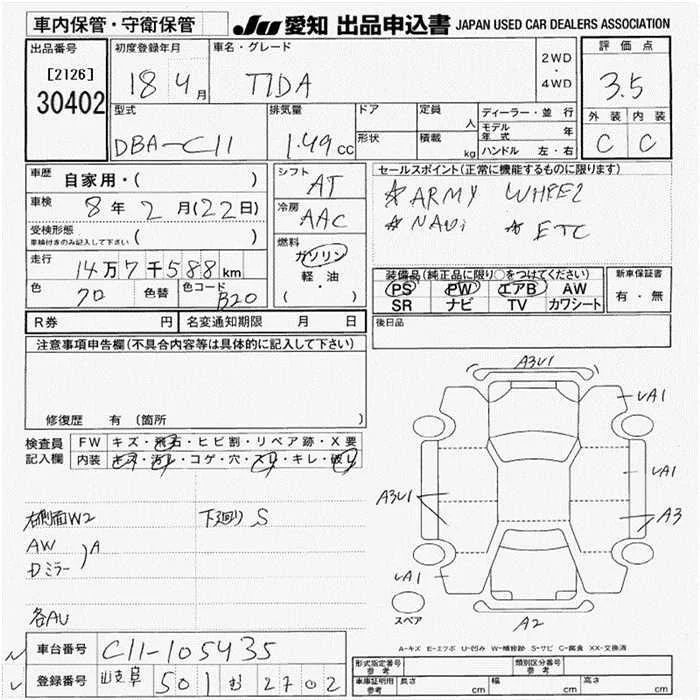 車内保管・守衛保管
JU 愛知 出品申込書 JAPAN USED CAR DEALERS ASSOCIATION
出品番号
[2126]
30402
初度登録年月
18 4月
車名・グレード
TIDA
2WD
・
4WD
評価点
3.5
外装 内装
C C
型式
DBA-C11
排気量
1.49cc
ドア
形状
定員 人
積載 kg
ディーラー・並 行
モデル年式 年
ハンドル 左・右
車歴
自家用・( )
車検
8年 2月(22日)
受検形態
車検付きのみ記入して下さい ( )
走行
14万7千588km
色
クロ
色替
色コード
B20
シフト
AT
冷房
AAC
燃料
ガソリン
軽・油
( )
セールスポイント(正常に機能するものに限ります)
☆ARMY WHEEL
☆NAVi ☆ETC
装備品(純正品に限り○をつけてください)
PS PW エアB AW
SR ナビ TV カワシート
新車保証書
有・無
R券 円
名変通知期限 月 日
後日品
注意事項申告欄(不具合内容等は具体的に記入して下さい)
修復歴 有 (箇所 )
検査員
記入欄
FW キズ・飛石・ヒビ割・リペア跡・X要
内装 キズ・汚レ・コゲ・穴・スレ・キレ・破レ
右側面W2
下廻り S
AW
Dミラー
A
各AU
A3U1
UA1
UA1
A3U1
A3
UA1
スペア
A2
A-キズ E-エクボ U-凹み W-補修跡 S-サビ C-腐食 XX-交換済
車台番号
C11-105435
登録番号
岐阜 501 お 2702
形式指定番号
参考
類別区分番号
参考
車庫証明用
参考
長さ cm
幅 cm
高さ cm